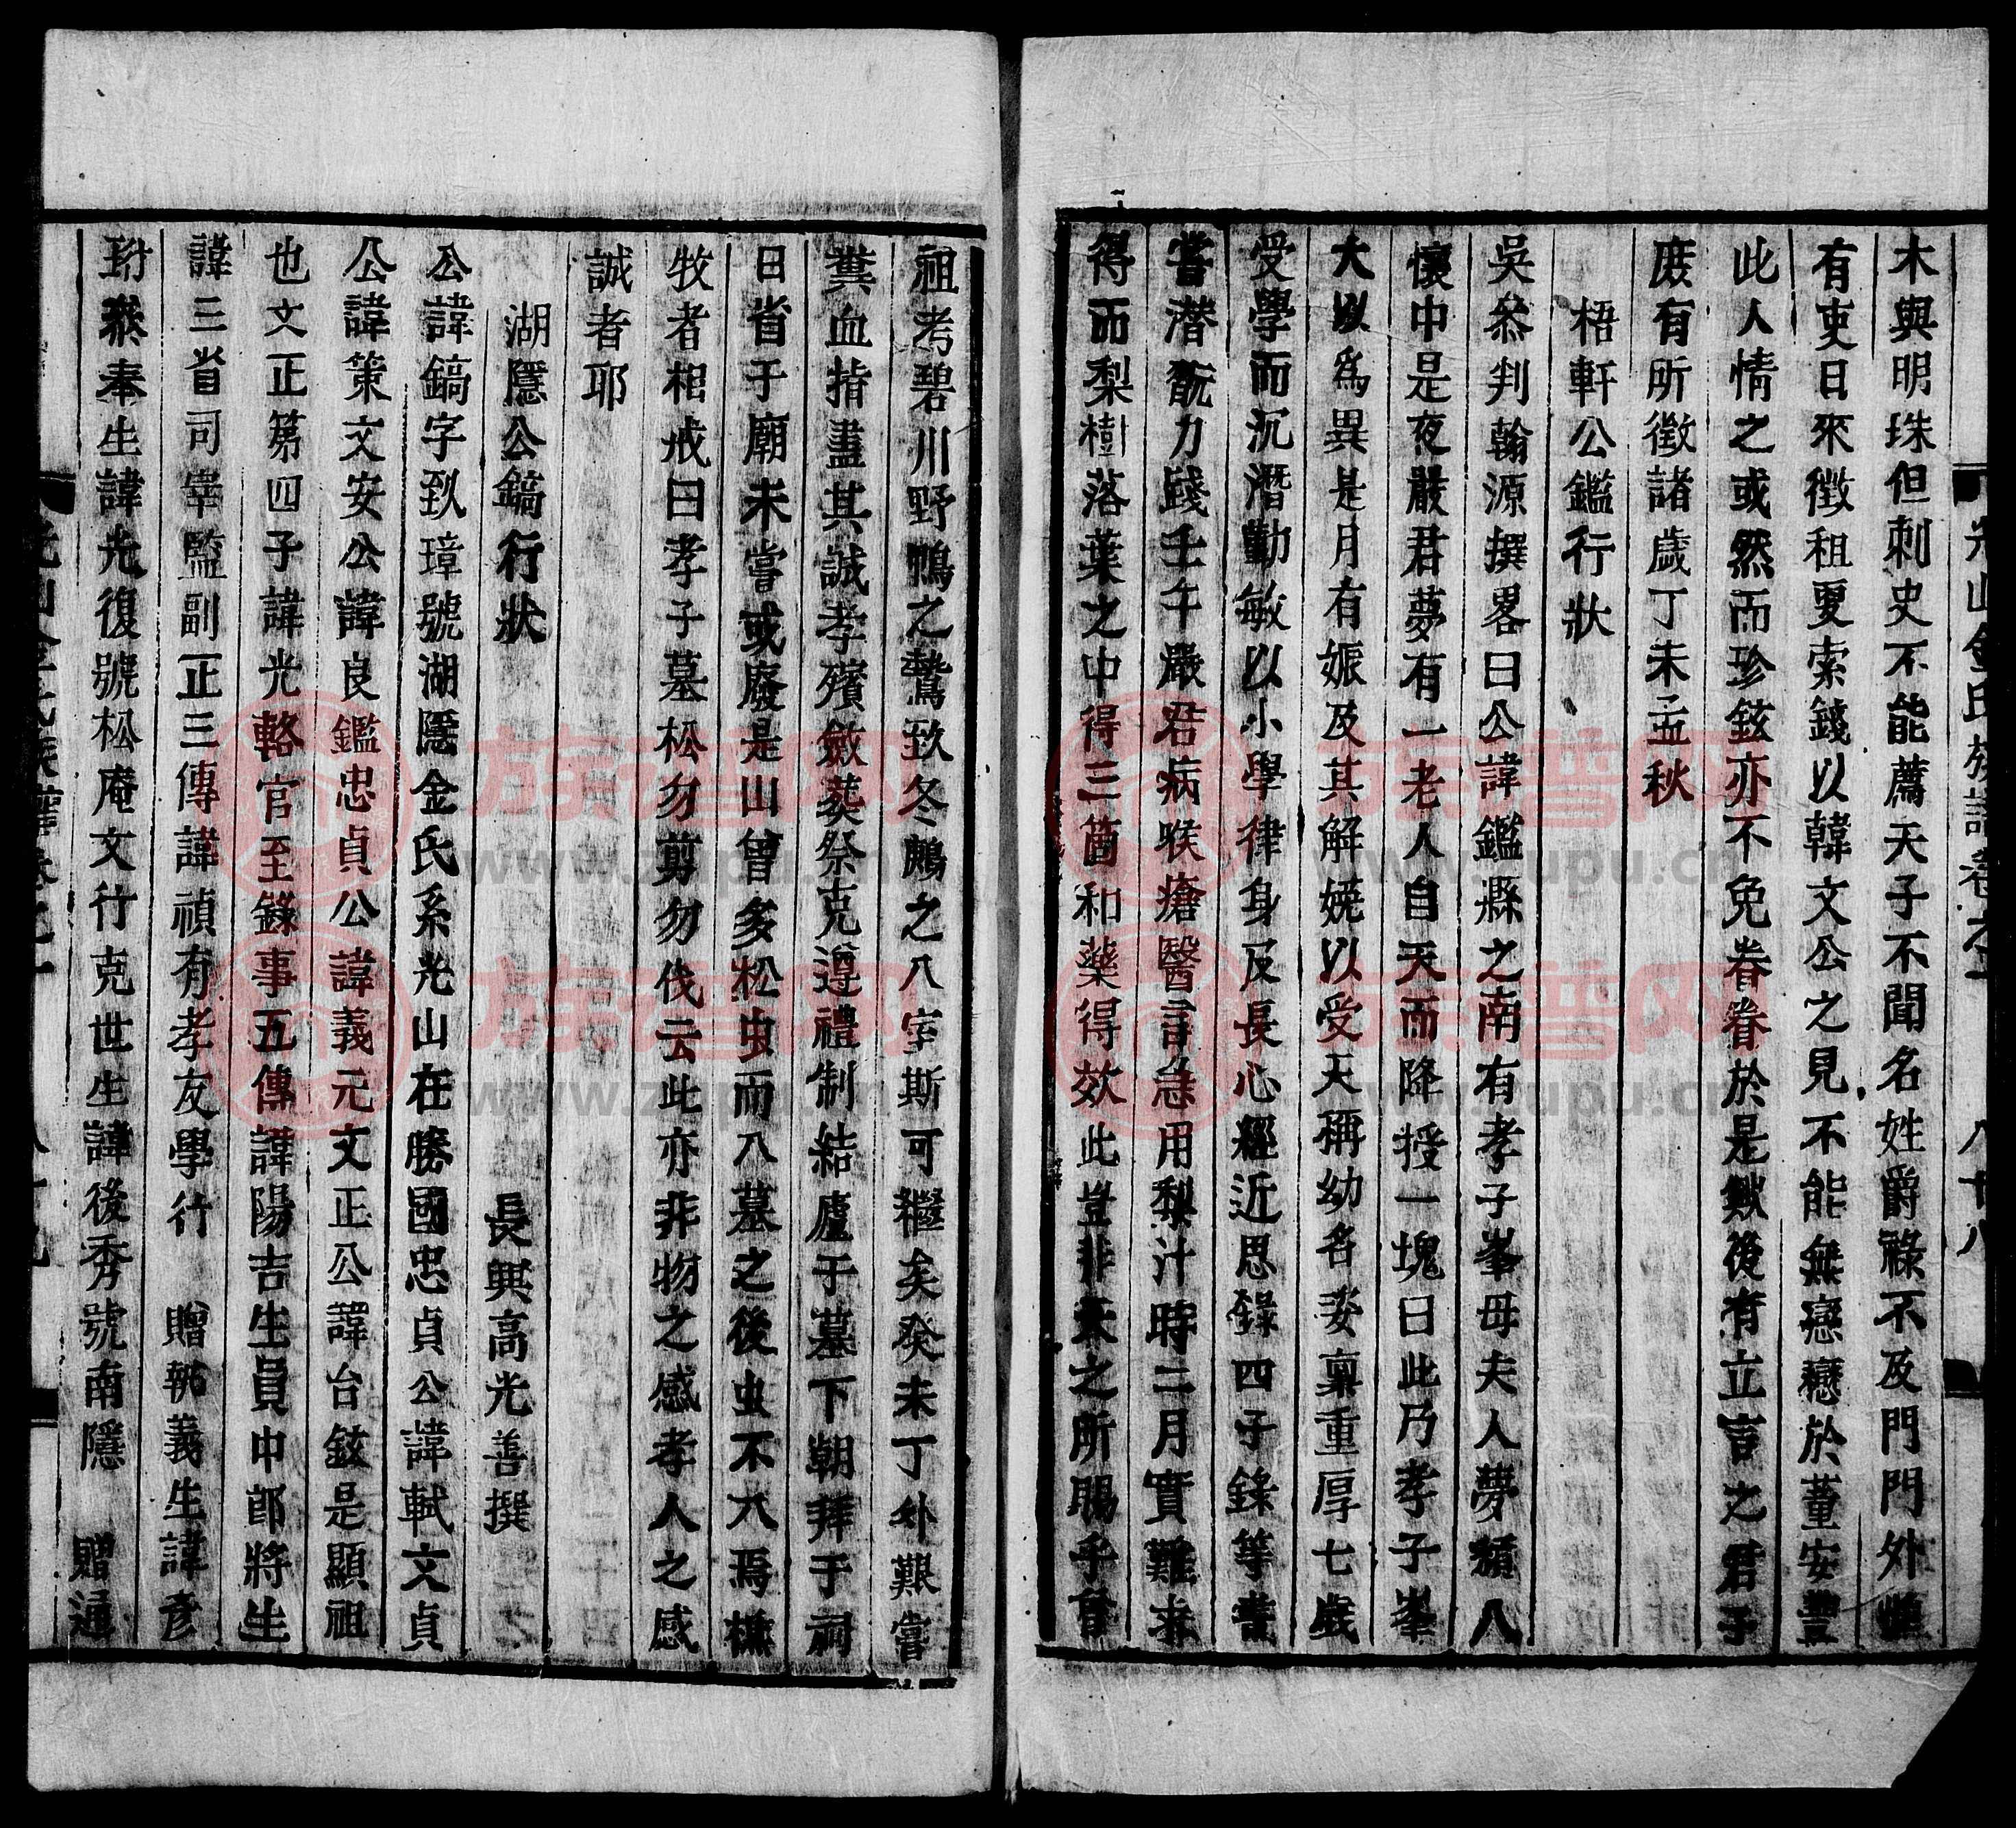 木與明珠但刺史不能薦天子不聞名姓爵祿不及門門外惟
有吏日來徵租更索錢以韓文公之見不能無戀戀於董安豐
此人情之或然而珍鉉亦不免眷眷於是歟後有立言之君子
庶有所徵諸歲丁未孟秋
梧軒公鑑行狀
吳叅判翰源撰畧曰公諱鑑縣之南有孝子峯母夫人夢頫入
懷中是夜嚴君夢有一老人自天而降授一塊曰此乃孝子峯
大以爲異是月有娠及其解娩以受天稱幼名姿稟重厚七歲
受學而沉潛勤敏以小學律身及長心經近思錄四子錄等書
嘗潛翫力踐壬午嚴君病喉瘡醫言急用梨汁時二月實難求
得而梨樹落葉之中得三箇和藥得效此豈非天之所賜乎曾
光山金氏族譜卷之一 八十八
祖考碧川野鴨之驚致冬鷓之入室斯可繼矣癸未丁外艱嘗
糞血指盡其誠孝殯斂葬祭克遵禮制結廬于墓下朝拜于祠
日省于廟未嘗或廢是山曾多松虫而入墓之後虫不入焉樵
牧者相戒曰孝子墓松勿剪勿伐云此亦非物之感孝人之感
誠者耶
湖隱公鎬行狀 長興高光善撰
公諱鎬字致璋號湖隱金氏系光山在勝國忠貞公諱軾文貞
公諱策文安公諱良鑑忠貞公諱義元文正公諱台鉉是顯祖
也文正第四子諱光輅官至錄事五傳諱陽吉生員中郎將生
諱三省司宰監副正三傳諱禎有孝友學行 贈執義生諱彦
琈叅奉生諱光復號松庵文行克世生諱後秀號南隱 贈通
光山金氏族譜卷之一 八十九
族谱网
www.zupu.cn
族谱网
www.zupu.cn
族谱网
www.zupu.cn
族谱网
www.zupu.cn